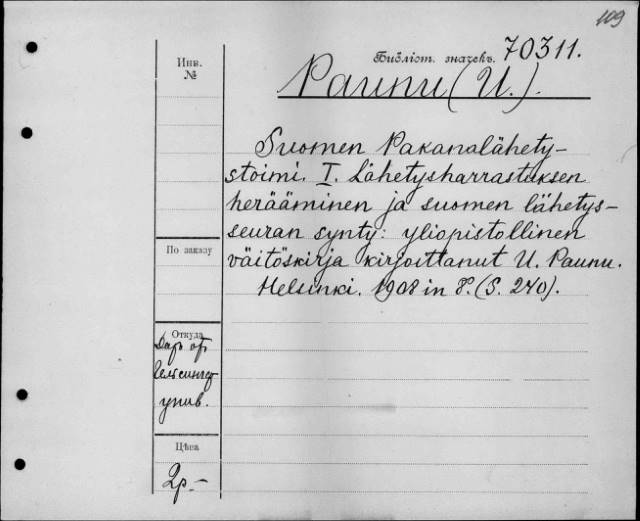 109
Инв. №
Библіот. значекъ. 70311.
Paunu (U.).
Suomen Pakanalähety-
stoimi. I. Lähetysharrastuksen
herääminen ja suomen lähetys-
seuran synty: yliopistollinen
väitöskirja kirjoittanut U. Paunu.
Helsinki. 1908 in 8°. (S. 240).
По заказу
Откуда
Даръ от
Гельсингф
унив.
Цѣна
2р.-